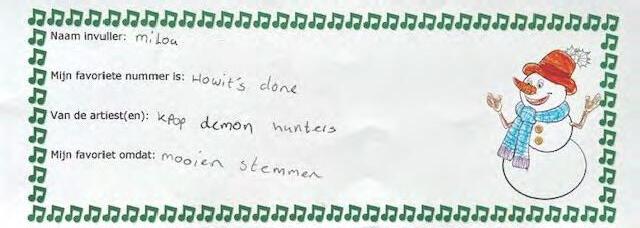 Naam invuller: milou
Mijn favoriete nummer is: Howit's done
Van de artiest(en): kpop demon hunters
Mijn favoriet omdat: mooien stemmen